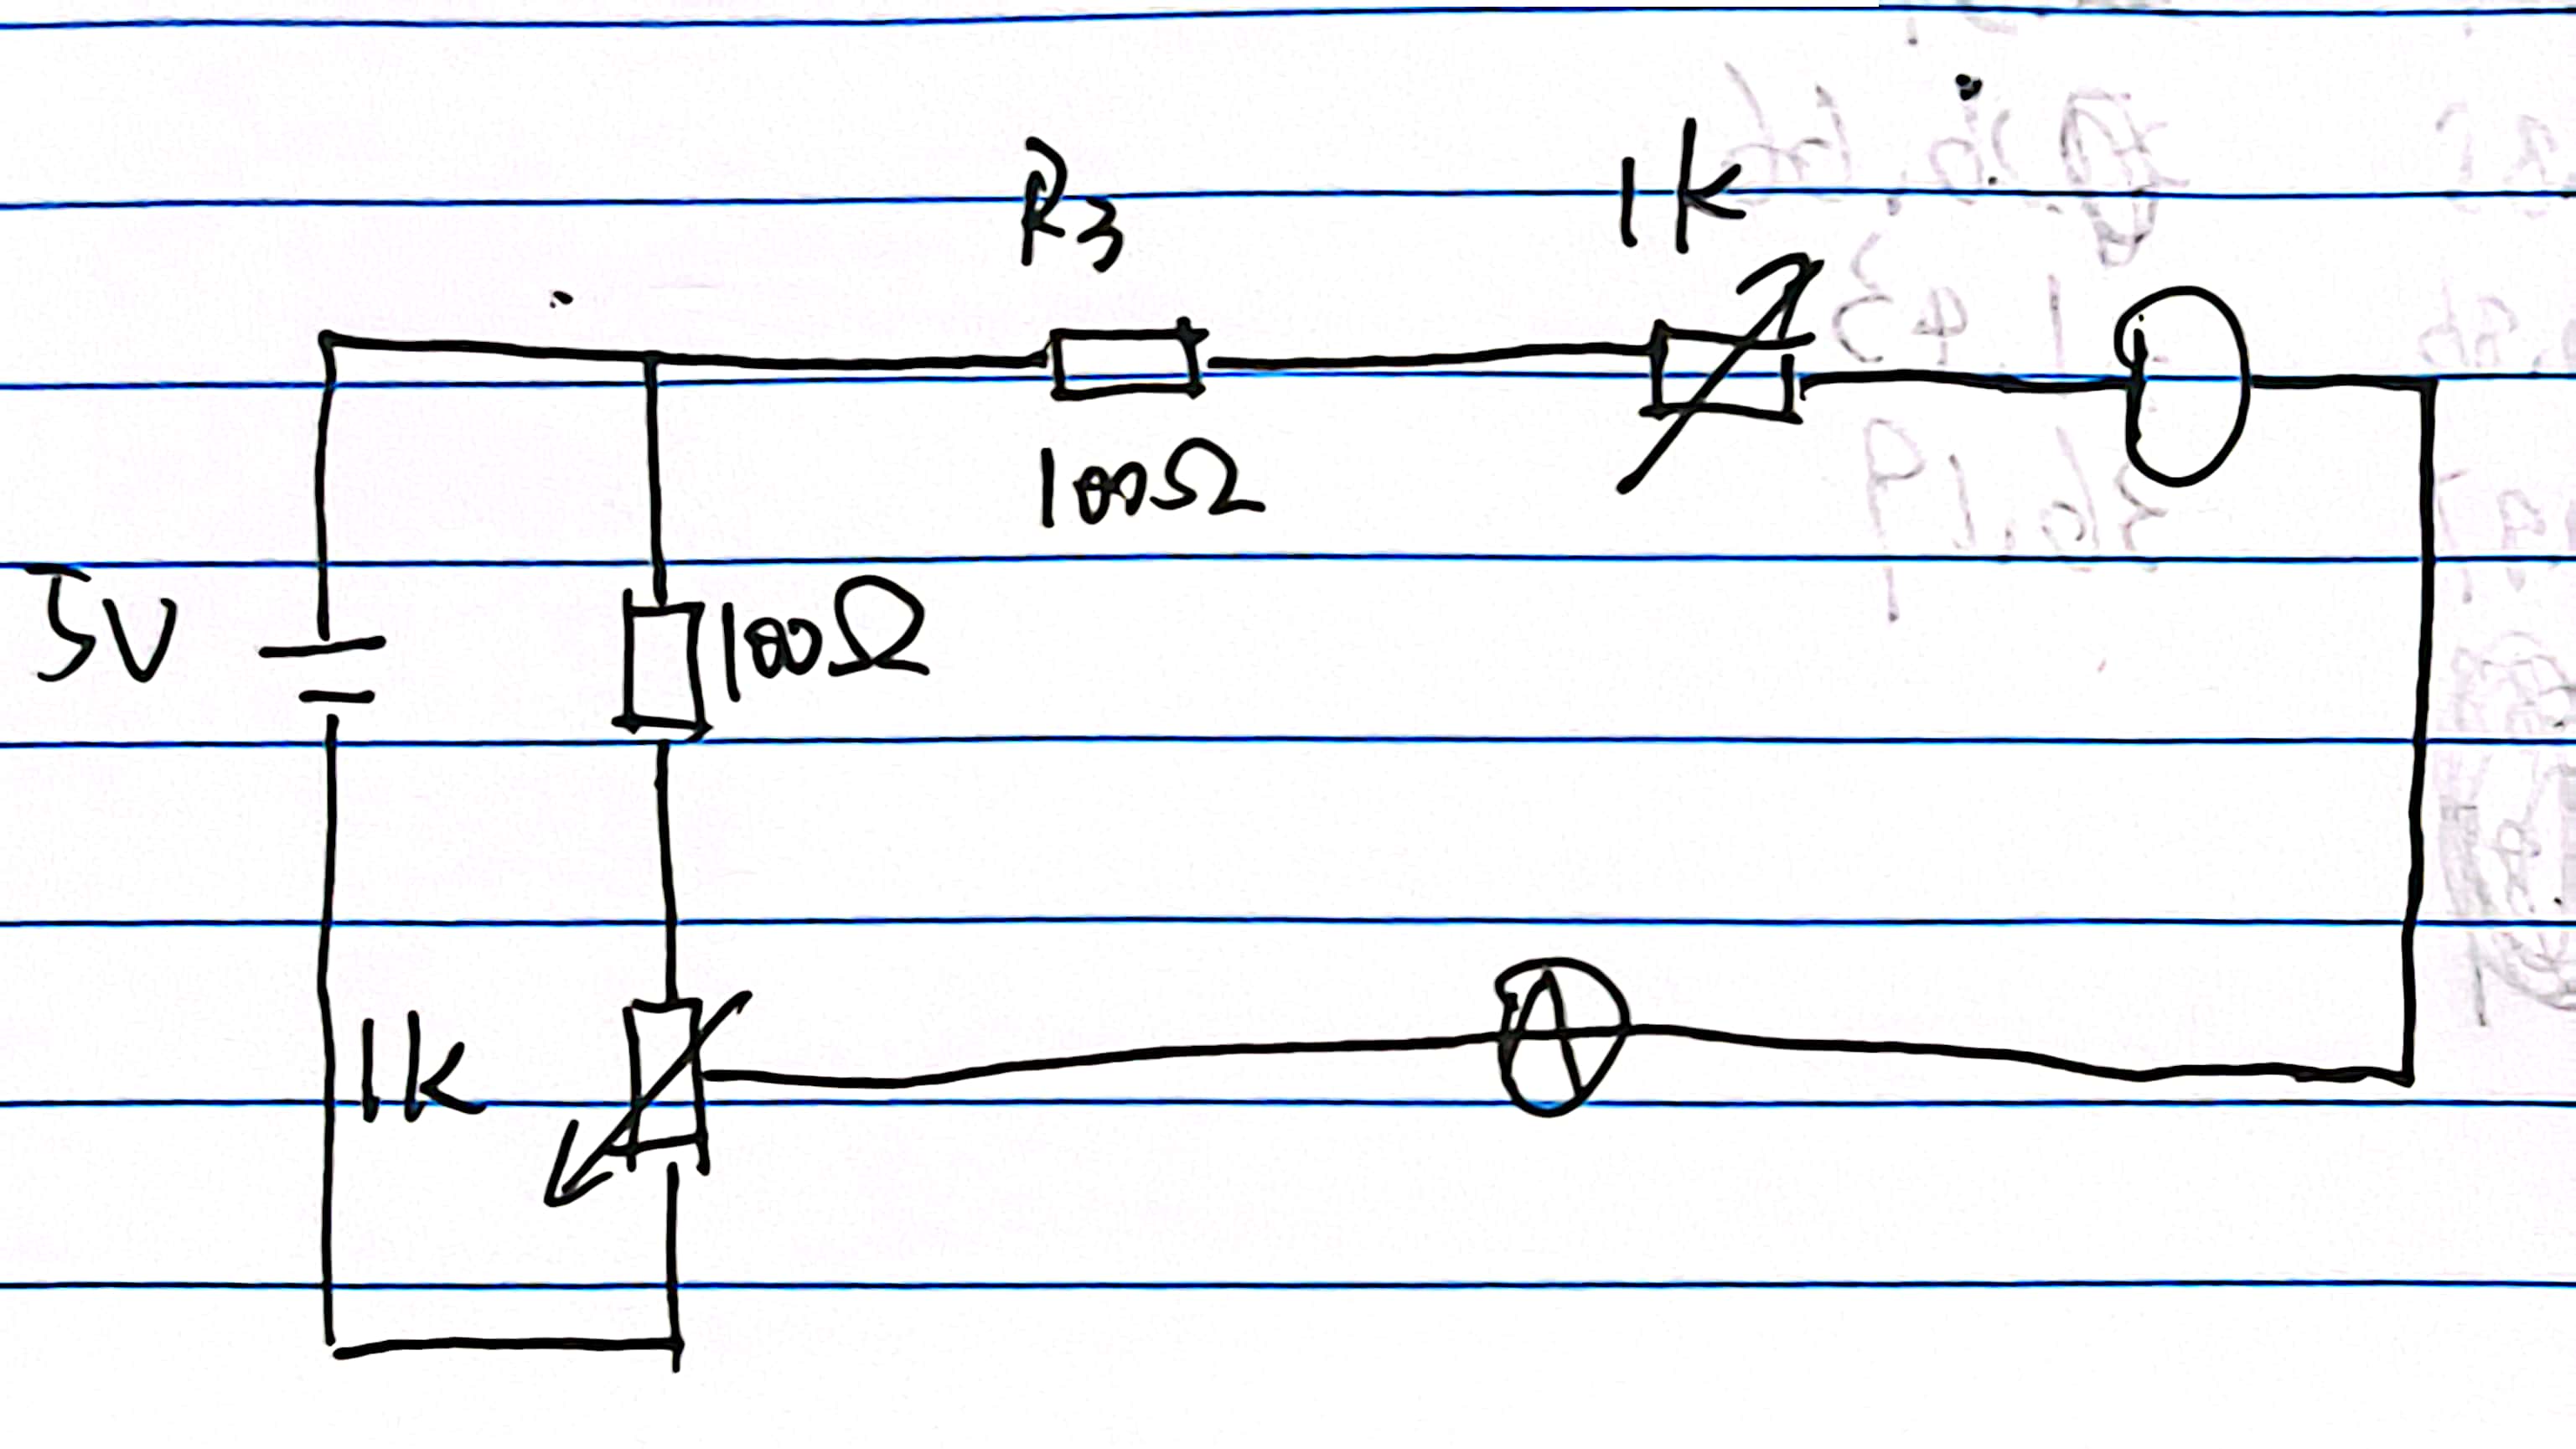 R3
1k
100Ω
5V
100Ω
1k
A